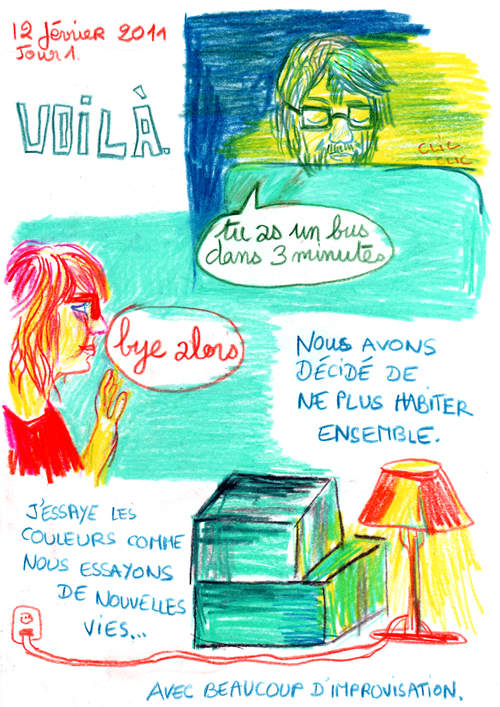 12 février 2011
Jour 1.
VOILÀ.
CLIC
CLIC
tu as un bus
dans 3 minutes
bye alors
NOUS AVONS
DÉCIDÉ DE
NE PLUS HABITER
ENSEMBLE.
J'ESSAYE LES
COULEURS COMME
NOUS ESSAYONS
DE NOUVELLES
VIES...
AVEC BEAUCOUP D'IMPROVISATION.